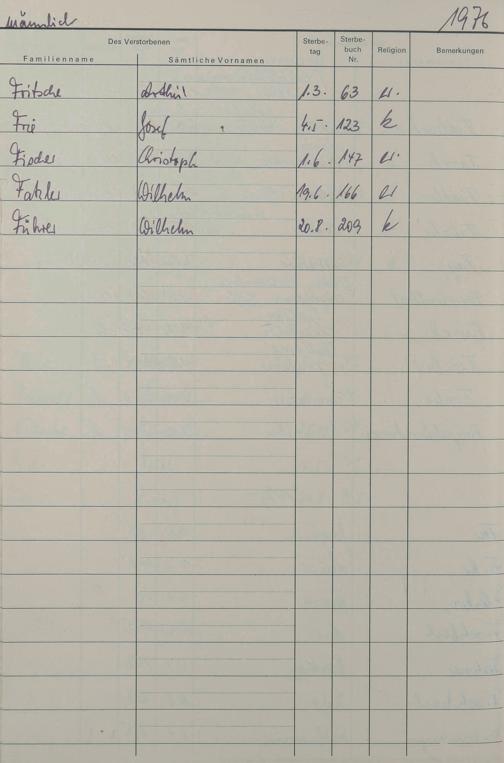 männlich 1976
Des Verstorbenen
Familienname Sämtliche Vornamen Sterbe-tag Sterbe-buch Nr. Religion Bemerkungen
Fritsche Arthur 1.3. 63 ev.
Frie Josef 4.5. 123 k
Christoph 1.6. 147 ev.
Wilhelm 19.6. 166 ev
Führer Wilhelm 20.8. 209 k